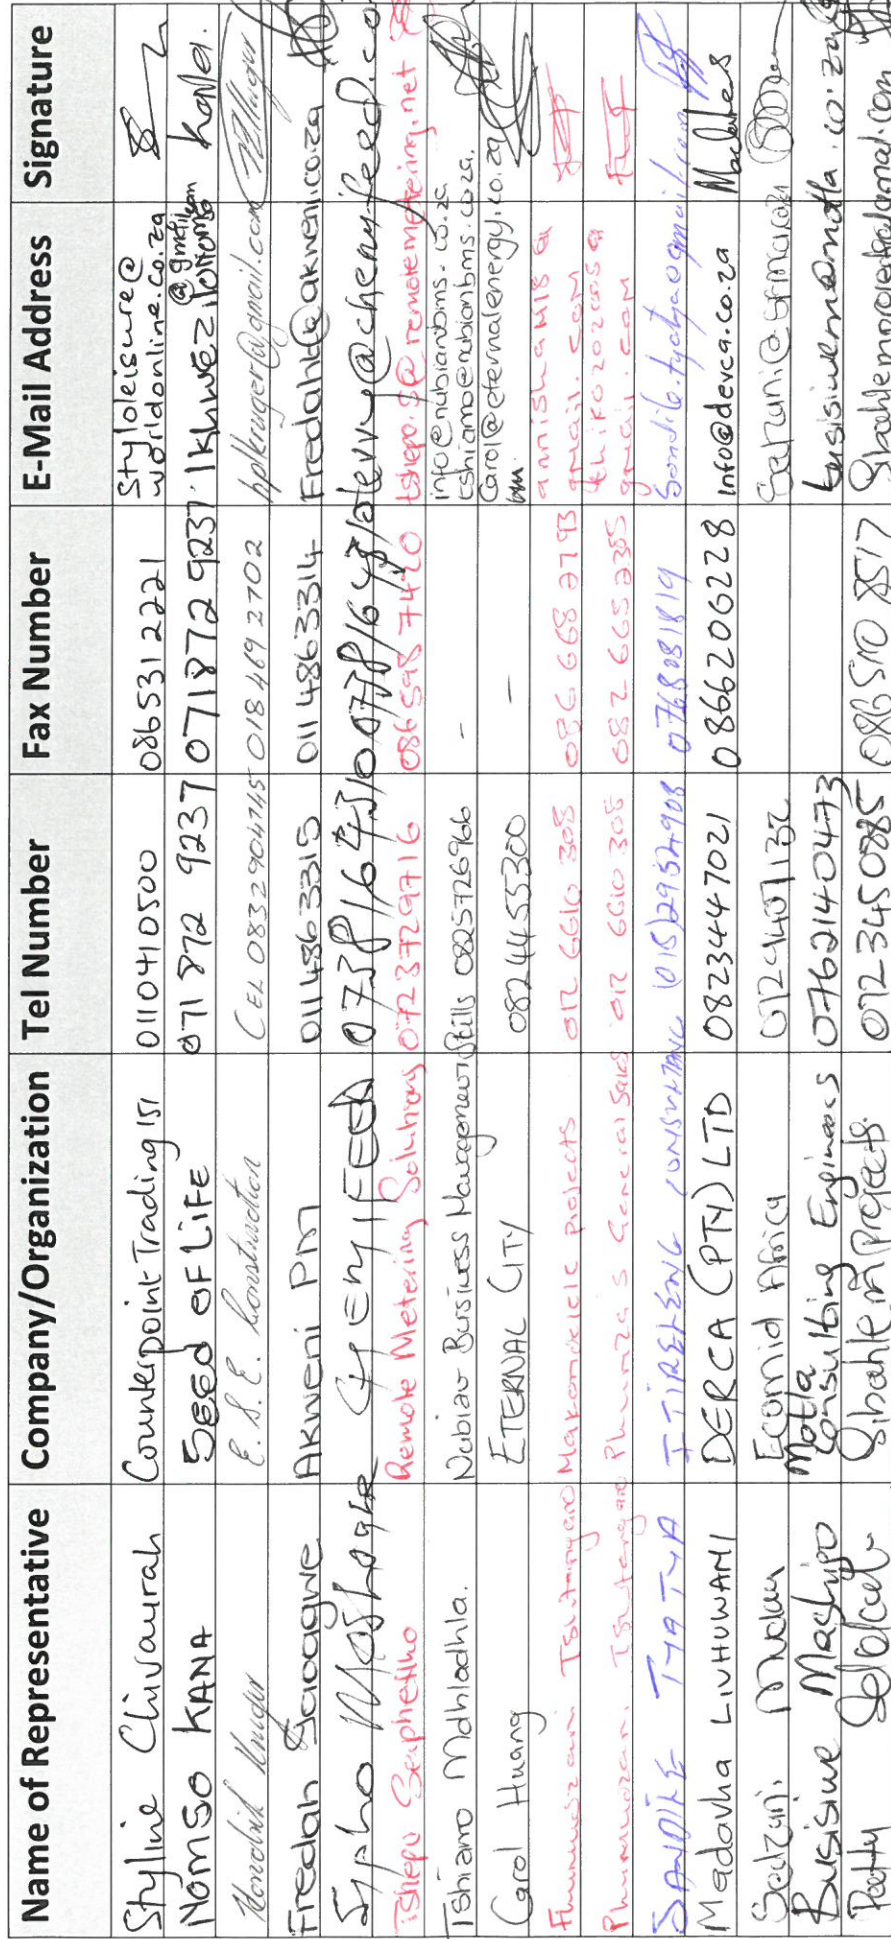 Name of Representative Company/Organization Tel Number Fax Number E-Mail Address Signature
Styline Chivaurah Counterpoint Trading 151 0110410500 0865312221 Styloleisure@
worldonline.co.za
NOMSO KANA Seed OF LiFE 071 872 9237 071872 9237
@gmail.com
Kana.
Hendrik Kruger E.S.E. Construction CEL 0832904745 018 469 2702 hplkruger@gmail.com
Fredah Akweni PM 011 486 3315 011 486 3314 Fredah@akweni.co.za
Sypho CHEMFEED
Tshepo Seaphetlho Remote Metering Solutions 0723729716 086 598 7420 tshepo.s@remotemetering.net
Tshiamo Mdhladhla. Nubian Business Management Skills 0825726966 - info@nubianbms.co.za
tshiamo@nubianbms.co.za.
Carol Huang ETERNAL CITY 0824455300 - Carol@eternalenergy.co.za
Makondelele Projects 012 6610 308 086 668 2793
gmail.com
Phunza's General Sales 012 6610 308 082 665 2385
gmail.com
SANDILE TYATYA ITIRELENG CONSULTING (015)2952908 0768081819 Sandile.tyatya@gmail.com
Madavha LIVHUWANI DERCA (PTY) LTD 0823447021 0866206228 info@devca.co.za
Ecomid Africa
Motla
Busisiwe Mashigo Consulting Engineers 0762140473 busisiwem@motla.co.za
Patty Sibahle M Projects. 0723450885 086 510 8517